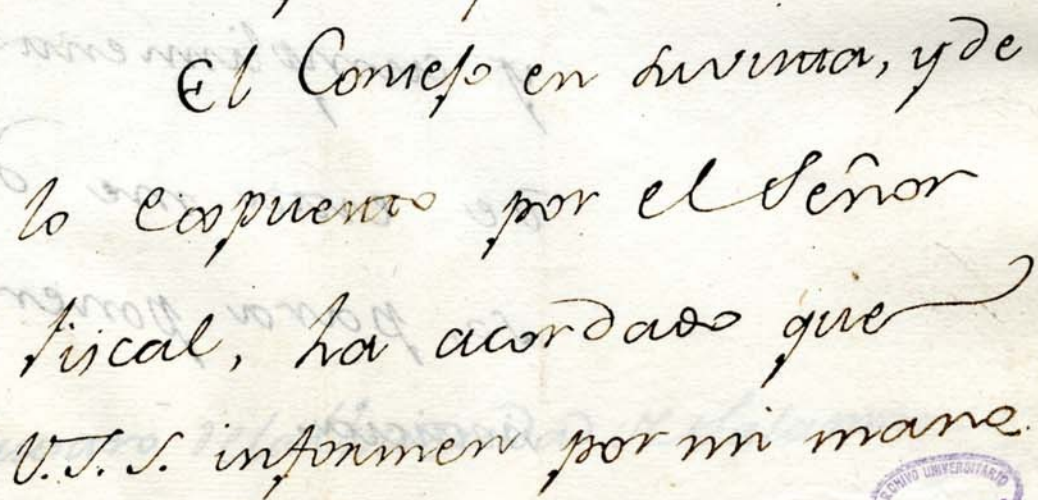 El Consejo en su vista, y de
lo expuesto por el Señor
fiscal, ha acordado que
V.S.S. informen por mi mano
ARCHIVO UNIVERSITARIO